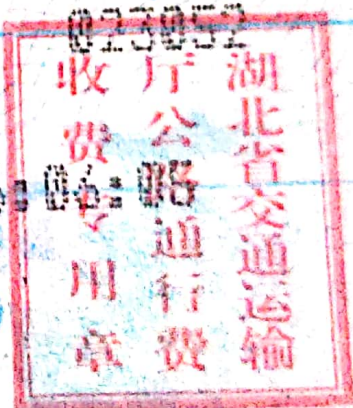 023052
湖北省交通运输
厅公路通行费
收费专用章
:06:08